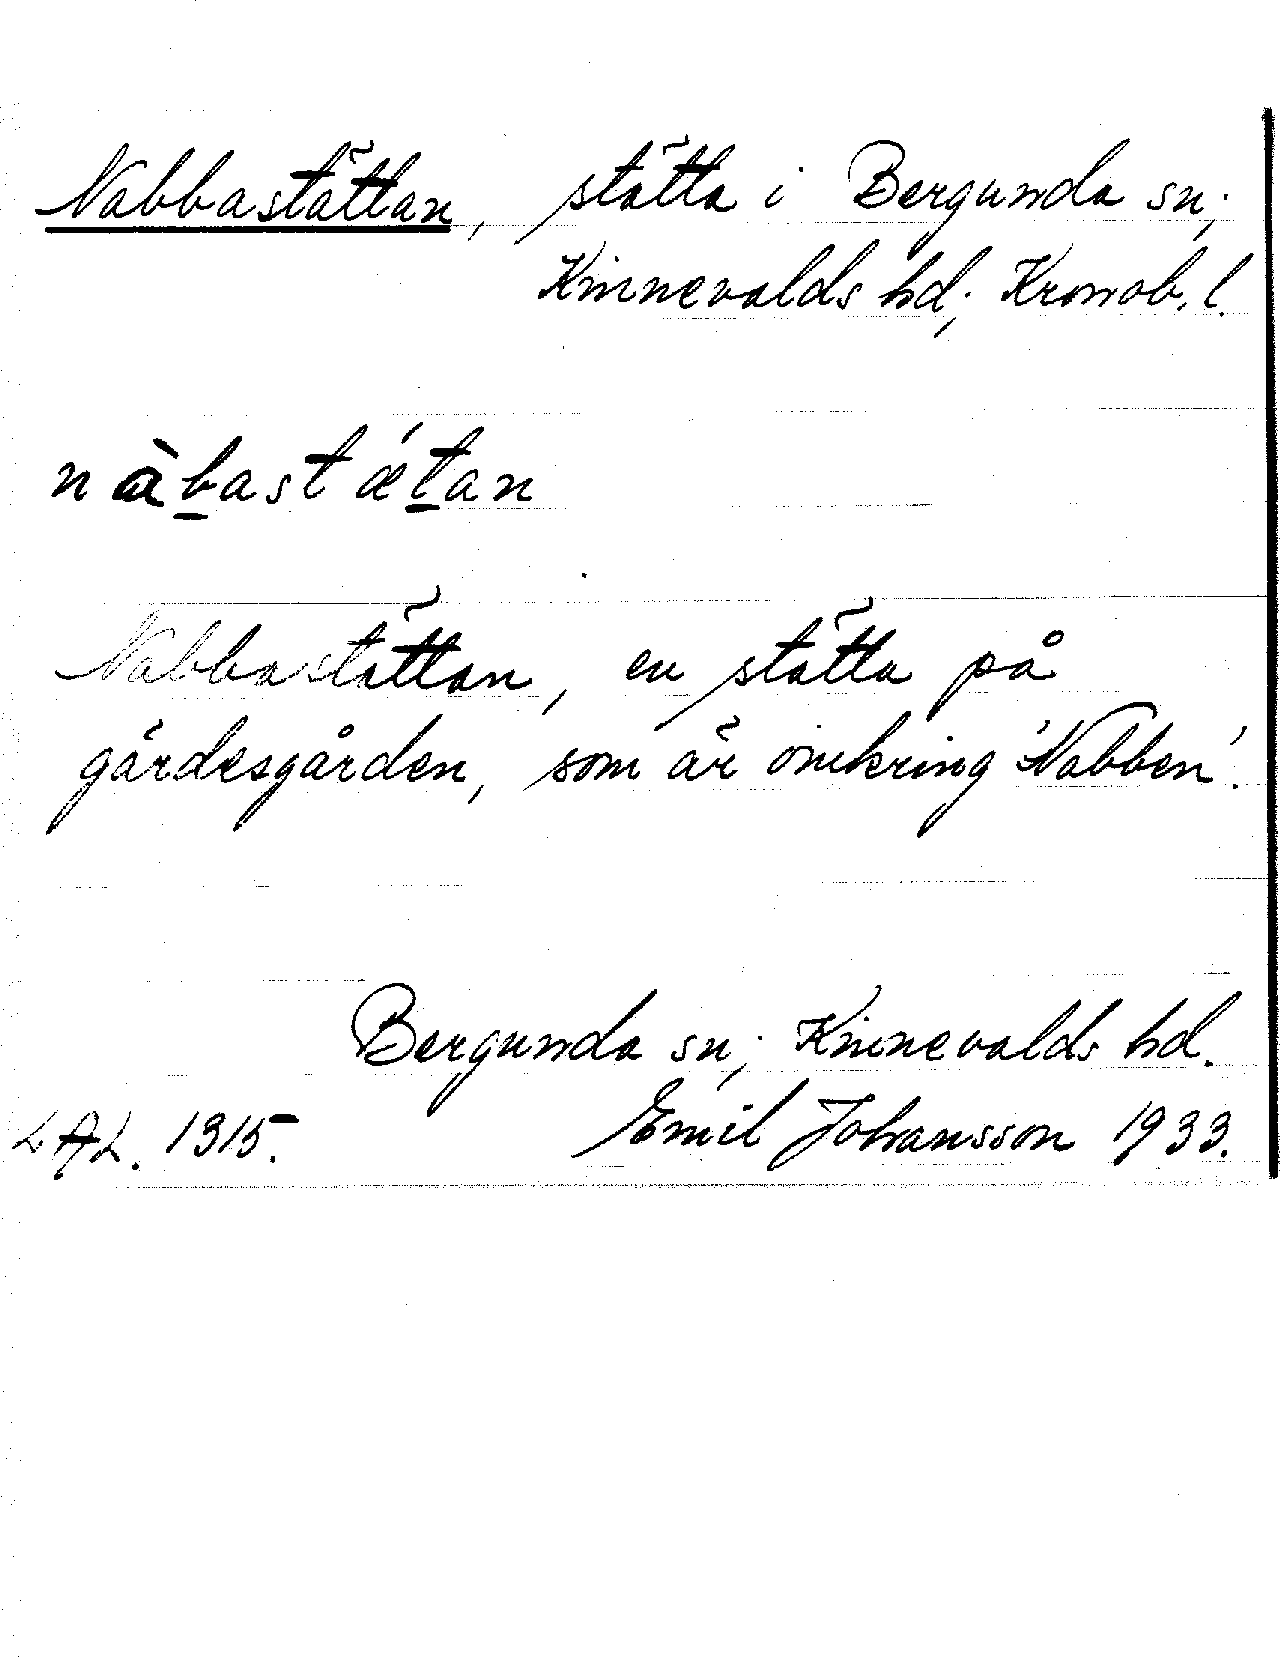 Nabbastättan, stätta i Bergunda sn;
Kinnevalds hd; Kronob. l.
nàb̲astǽt̲an
Nabbastättan, en stätta på
gärdesgården, som är omkring 'Nabben'.
Bergunda sn; Kinnevalds hd.
LAL. 1315. Emil Johansson 1933.